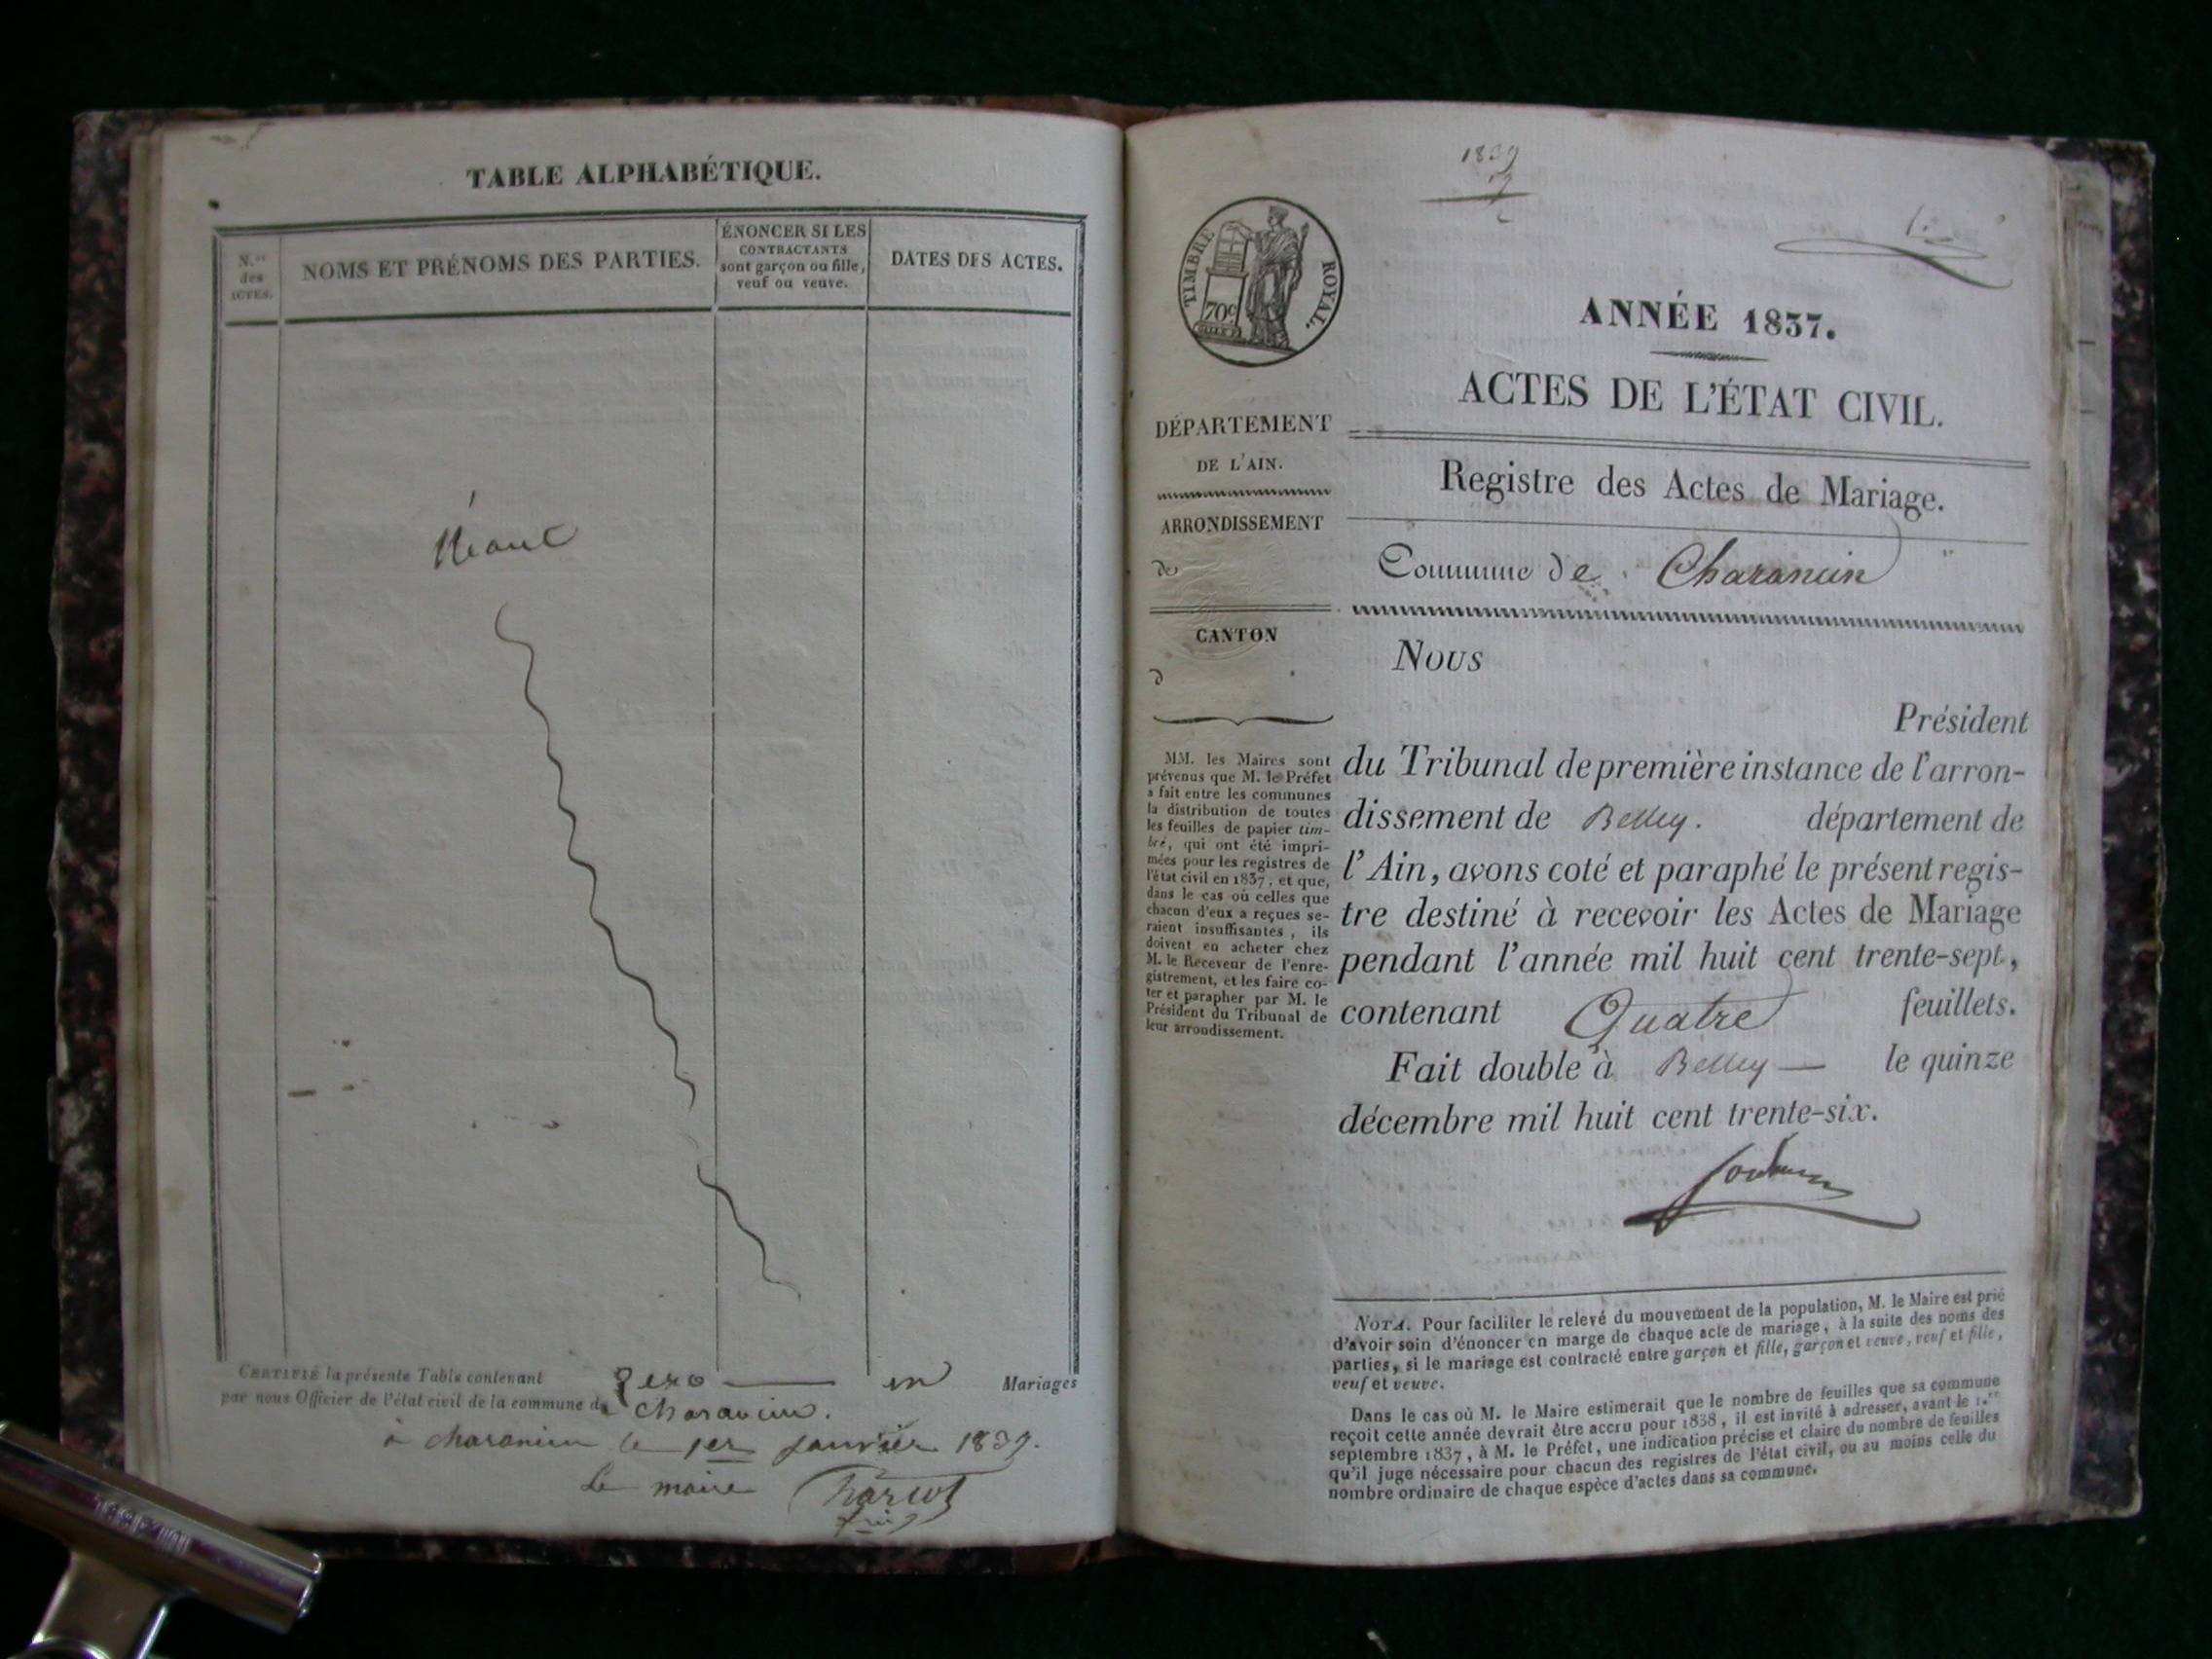 TABLE ALPHABÉTIQUE.
N.os
des
ACTES.
NOMS ET PRÉNOMS DES PARTIES.
ÉNONCER SI LES
CONTRACTANTS
sont garçon ou fille,
veuf ou veuve.
DATES DES ACTES.
Néant
CERTIFIÉ la présente Table contenant Zero en Mariages
par nous Officier de l'état civil de la commune de Charancin.
à charancin le 1er janvier 1837.
Le maire
1.
TIMBRE ROYAL.
70c
ANNÉE 1837.
ACTES DE L'ÉTAT CIVIL.
DÉPARTEMENT
DE L'AIN.
ARRONDISSEMENT
de
CANTON
d
MM. les Maires sont
prévenus que M. le Préfet
a fait entre les communes
la distribution de toutes
les feuilles de papier tim-
bré, qui ont été impri-
mées pour les registres de
l'état civil en 1837, et que,
dans le cas où celles que
chacun d'eux a reçues se-
raient insuffisantes, ils
doivent en acheter chez
M. le Receveur de l'enre-
gistrement, et les faire co-
ter et parapher par M. le
Président du Tribunal de
leur arrondissement.
Registre des Actes de Mariage.
Commune de Charancin
Nous
Président
du Tribunal de première instance de l'arron-
dissement de Belley. département de
l'Ain, avons coté et paraphé le présent regis-
tre destiné à recevoir les Actes de Mariage
pendant l'année mil huit cent trente-sept,
contenant Quatre feuillets.
Fait double à Belley le quinze
décembre mil huit cent trente-six.
NOTA. Pour faciliter le relevé du mouvement de la population, M. le Maire est prié
d'avoir soin d'énoncer en marge de chaque acte de mariage, à la suite des noms des
parties, si le mariage est contracté entre garçon et fille, garçon et veuve, veuf et fille,
veuf et veuve.
Dans le cas où M. le Maire estimerait que le nombre de feuilles que sa commune
reçoit cette année devrait être accru pour 1838, il est invité à adresser, avant le 1.er
septembre 1837, à M. le Préfet, une indication précise et claire du nombre de feuilles
qu'il juge nécessaire pour chacun des registres de l'état civil, ou au moins celle du
nombre ordinaire de chaque espèce d'actes dans sa commune.